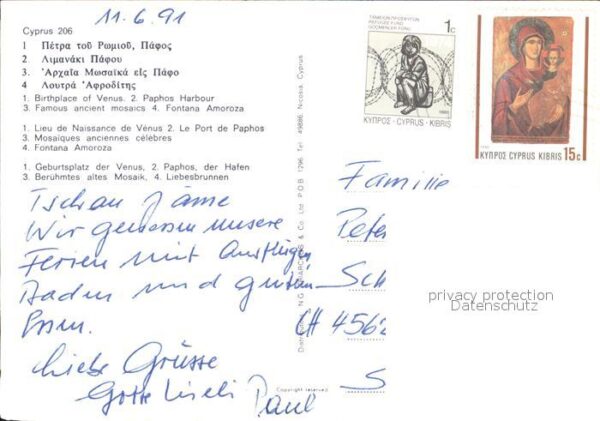 11.6.91
Cyprus 206
1 Πέτρα τοῦ Ρωμιοῦ, Πάφος
2. Λιμανάκι Πάφου
3. Ἀρχαῖα Μωσαϊκά εἰς Πάφο
4 Λουτρά Ἀφροδίτης
1. Birthplace of Venus. 2. Paphos Harbour
3. Famous ancient mosaics 4. Fontana Amoroza
1. Lieu de Naissance de Vénus 2. Le Port de Paphos
3. Mosaïques anciennes célèbres
4. Fontana Amoroza
1. Geburtsplatz der Venus, 2. Paphos, der Hafen
3. Berühmtes altes Mosaik, 4. Liebesbrunnen
Tschau
Wir geniessen unsere
Ferien mit Ausflügen
Baden und gutem
Essen.
Liebe Grüsse
Gotte Liseli Paul
& Co. Ltd. P.O.B. 1296 Tel. 49886, Nicosia, Cyprus
Copyright reserved
1c
ΚΥΠΡΟΣ - CYPRUS - KIBRIS
ΚΥΠΡΟΣ CYPRUS KIBRIS 15c
Familie
Peter
Sch
CH 4562
S
privacy protection
Datenschutz